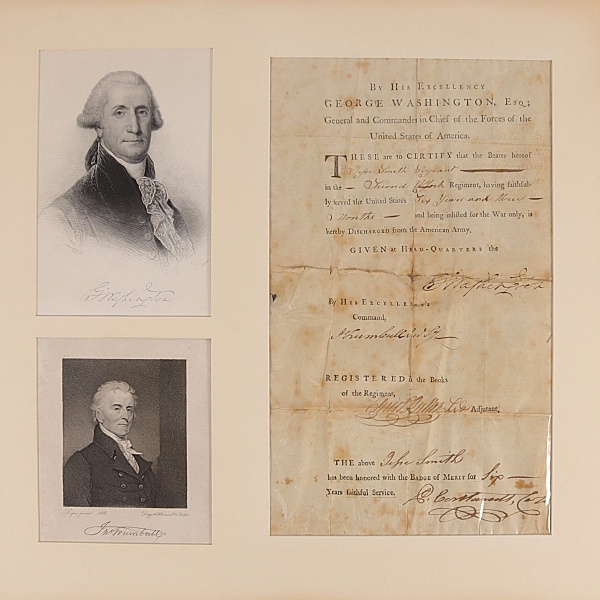 G Washington
Jno Trumbull
BY HIS EXCELLENCY
GEORGE WASHINGTON, ESQ;
General and Commander in Chief of the Forces of the
United States of America.
THESE are to CERTIFY that the Bearer hereof
Jesse Smith Serjeant
in the Second York Regiment, having faithful-
ly served the United States Six Years and three
Months and being inlisted for the War only, is
hereby DISCHARGED from the American Army.
GIVEN at HEAD-QUARTERS the
G Washington
By HIS EXCELLENCY'S
Command,
J Trumbull Jun Sy
REGISTERED in the Books
of the Regiment,
Adjutant,
THE above Jesse Smith
has been honored with the BADGE of MERIT for Six
Years faithful Service.